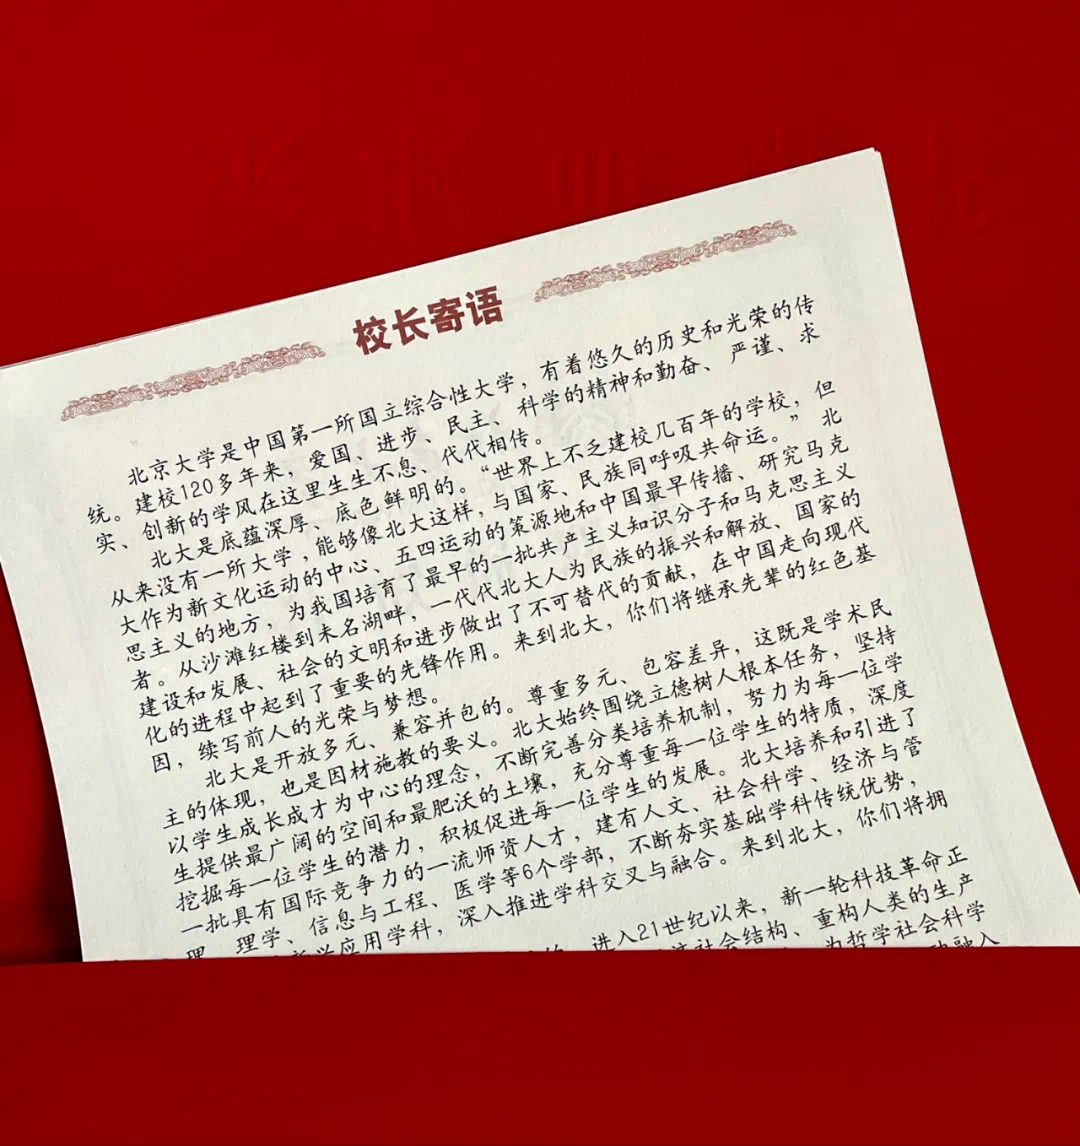 校长寄语
北京大学是中国第一所国立综合性大学，有着悠久的历史和光荣的传
统。建校120多年来，爱国、进步、民主、科学的精神和勤奋、严谨、求
实、创新的学风在这里生生不息、代代相传。
北大是底蕴深厚、底色鲜明的。“世界上不乏建校几百年的学校，但
从来没有一所大学，能够像北大这样，与国家、民族同呼吸共命运。”北
大作为新文化运动的中心、五四运动的策源地和中国最早传播、研究马克
思主义的地方，为我国培育了最早的一批共产主义知识分子和马克思主义
者。从沙滩红楼到未名湖畔，一代代北大人为民族的振兴和解放、国家的
建设和发展、社会的文明和进步做出了不可替代的贡献，在中国走向现代
化的进程中起到了重要的先锋作用。来到北大，你们将继承先辈的红色基
因，续写前人的光荣与梦想。
北大是开放多元、兼容并包的。尊重多元、包容差异，这既是学术民
主的体现，也是因材施教的要义。北大始终围绕立德树人根本任务，坚持
以学生成长成才为中心的理念，不断完善分类培养机制，努力为每一位学
生提供最广阔的空间和最肥沃的土壤，充分尊重每一位学生的特质，深度
挖掘每一位学生的潜力，积极促进每一位学生的发展。北大培养和引进了
一批具有国际竞争力的一流师资人才，建有人文、社会科学、经济与管
理、理学、信息与工程、医学等6个学部，不断夯实基础学科传统优势，
应用学科，深入推进学科交叉与融合。来到北大，你们将拥
进入21世纪以来，新一轮科技革命正
社会结构、重构人类的生产
为哲学社会科学
融入